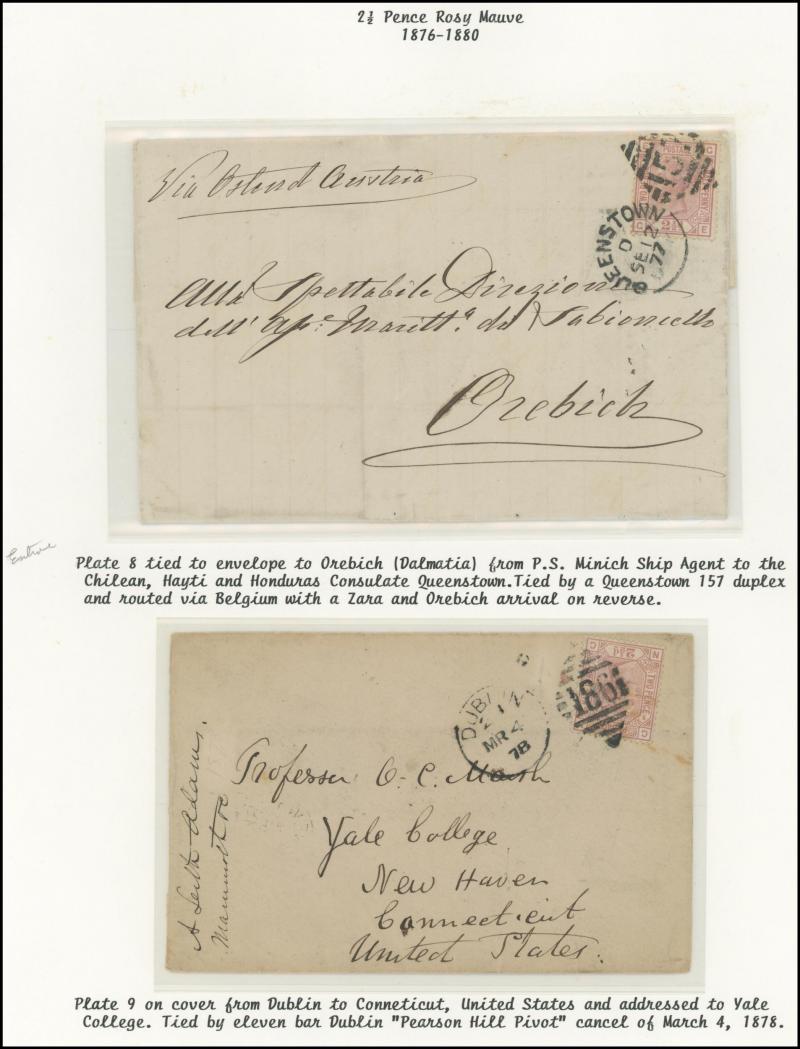 2½ Pence Rosy Mauve
1876-1880
Via Ostend Austria
QUEENSTOWN
D
SE 12
77
Alla Spettabile Direzione
dell' Maritt.ª da Sabioncello
Orebich
Plate 8 tied to envelope to Orebich (Dalmatia) from P.S. Minich Ship Agent to the
Chilean, Hayti and Honduras Consulate Queenstown.Tied by a Queenstown 157 duplex
and routed via Belgium with a Zara and Orebich arrival on reverse.
DUBL
MR 4
78
186
2½d
TWO PENCE
N
C
Professor O. C. Marsh
Yale College
New Haven
Connecticut
United States.
A Leith Adams.
Plate 9 on cover from Dublin to Conneticut, United States and addressed to Yale
College. Tied by eleven bar Dublin "Pearson Hill Pivot" cancel of March 4, 1878.